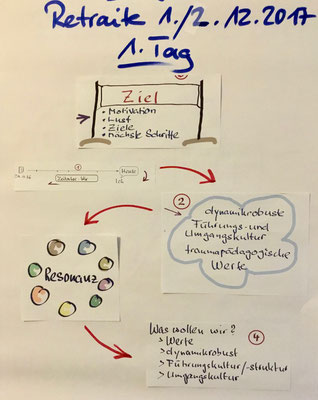 Retraite 1./2.12.2017
1. Tag
Ziel
• Motivation
• Lust
• Ziele
• nächste Schritte
Heute
2
dynamikrobuste
Führungs- und
Umgangskultur
traumapädagogische
Werte
Resonanz
4
Was wollen wir?
> Werte
> dynamikrobust
> Führungskultur/-struktur
> Umgangskultur